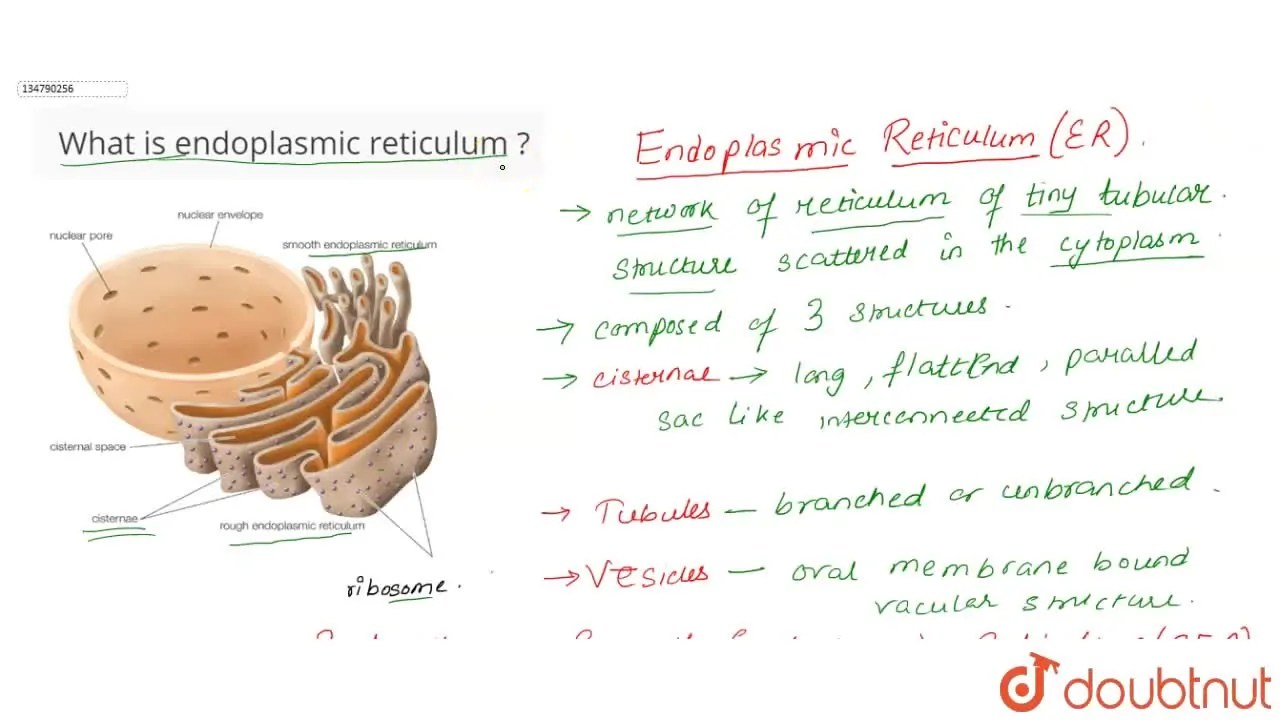 134790256
What is endoplasmic reticulum ?
nuclear envelope
nuclear pore
smooth endoplasmic reticulum
cisternal space
cisternae
rough endoplasmic reticulum
ribosome.
Endoplasmic Reticulum (ER).
→ network of reticulum of tiny tubular.
structure scattered in the cytoplasm.
→ composed of 3 structures.
→ cisternae → long, flattend, paralled
sac like interconnected structure.
→ Tubules — branched or unbranched.
→ Vesicles — oval membrane bound
vacular structure.
doubtnut